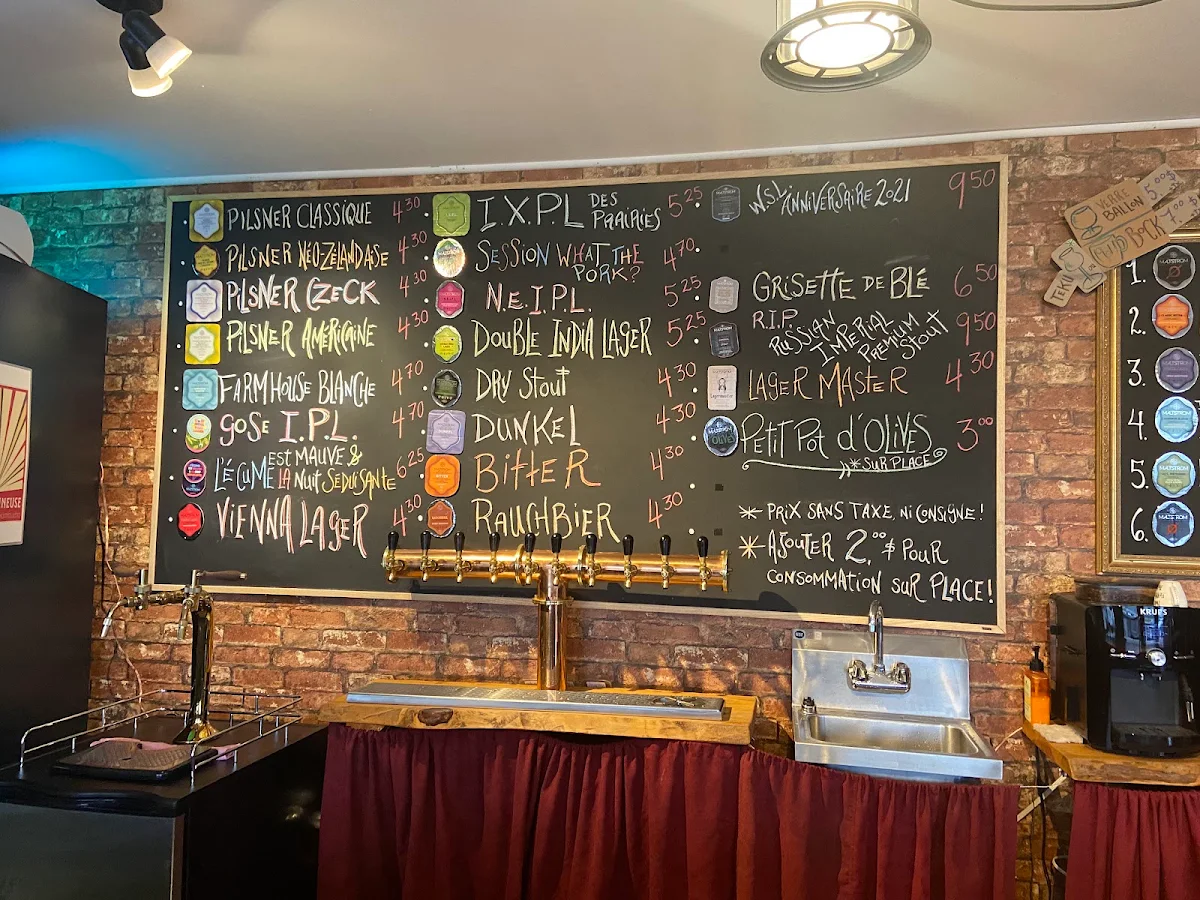 PILSNER CLASSIQUE 4.30
PILSNER NÉO-ZÉLANDAISE 4.30
PILSNER CZECK 4.30
PILSNER AMÉRICAINE 4.30
FARMHOUSE BLANCHE 4.70
GOSE I.P.L. 4.70
L'ÉCUME EST MAUVE &
LA NUIT SÉDUISANTE 6.25
VIENNA LAGER 4.30
I.X.P.L DES
PRAIRIES 5.25
SESSION WHAT THE
PORK? 4.70
N.E.I.P.L. 5.25
DOUBLE INDIA LAGER 5.25
DRY STOUT 4.30
DUNKEL 4.30
BITTER 4.30
RAUCHBIER 4.30
W.S.L ANNIVERSAIRE 2021 9.50
GRISETTE DE BLÉ 6.50
R.I.P.
RUSSIAN
IMPERIAL
PREMIUM
STOUT 9.50
LAGER MASTER 4.30
PETIT POT d'OLIVES 3.00
* SUR PLACE
* PRIX SANS TAXE, NI CONSIGNE!
* AJOUTER 2.00$ POUR
CONSOMMATION SUR PLACE!
VERRE
BALLON 5.00$
BOCK
TEKU
1.
2.
3.
4.
5.
6.
KRUPS